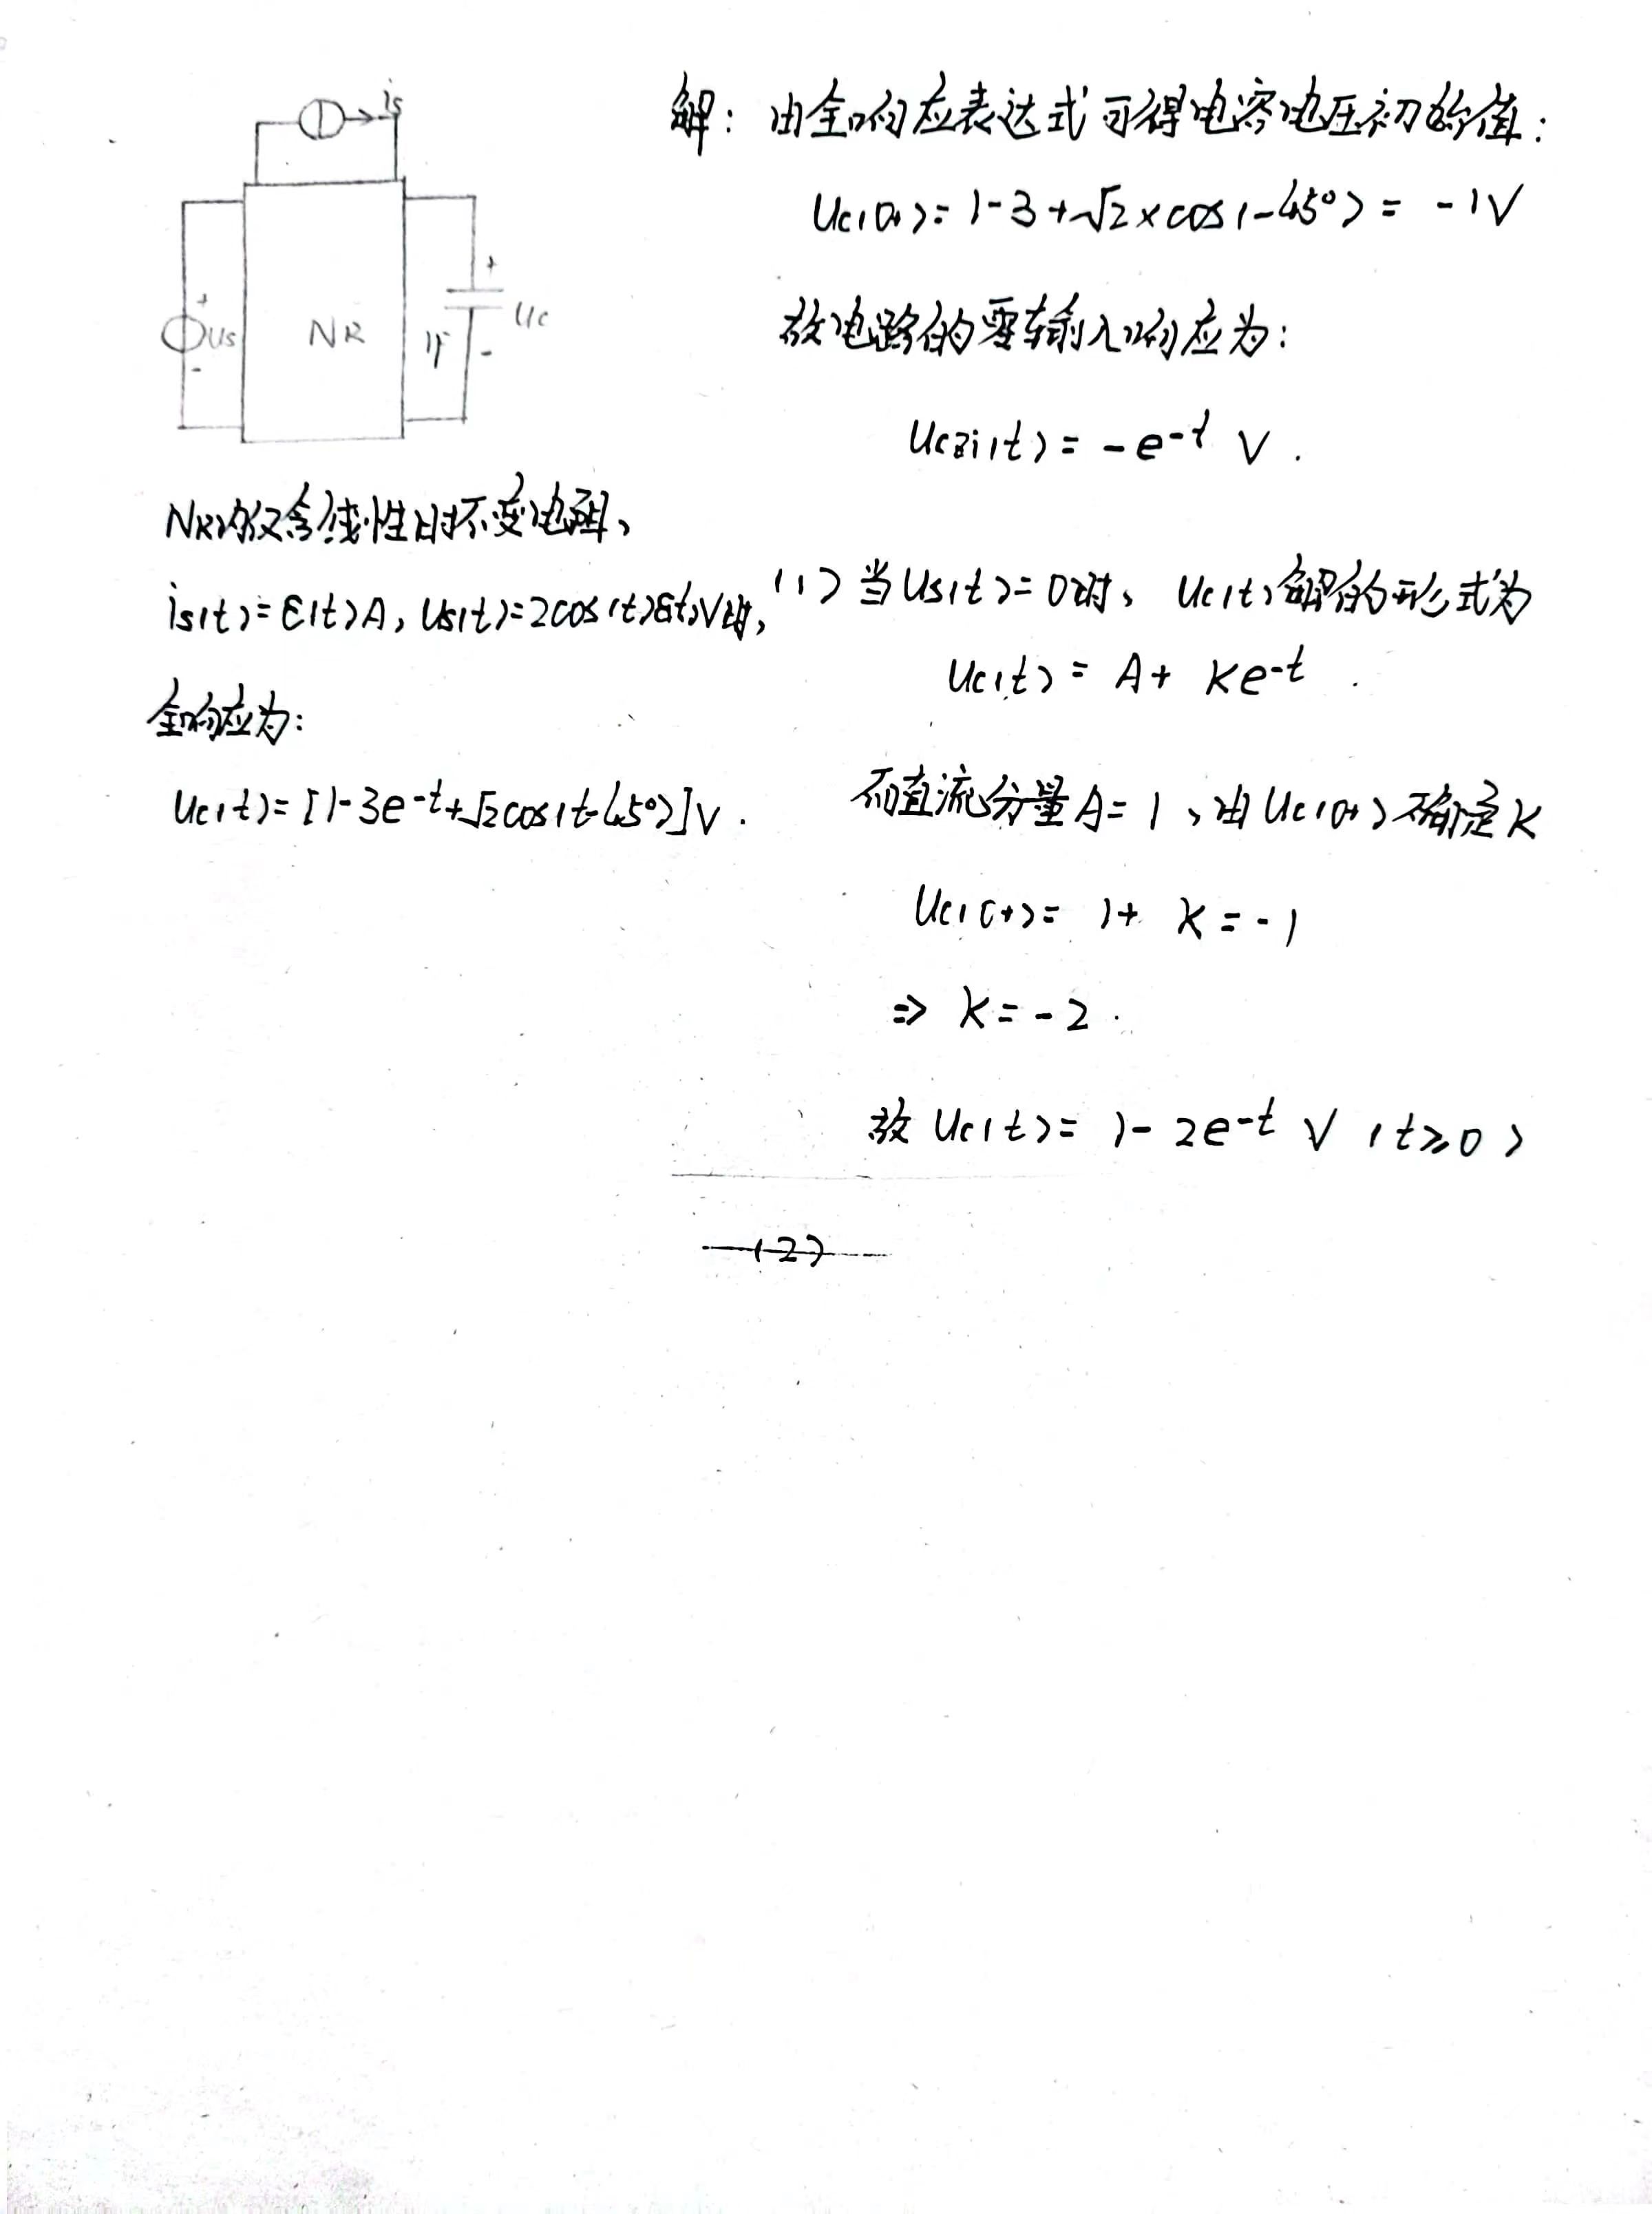 is
+
us
-
NR
1F
+
uc
-
NR内仅含线性时不变电阻,
is(t)=ε(t)A, us(t)=2cos(t)ε(t)V时,
全响应为:
uc(t)=[1-3e-t+√2cos(t-45°)]V.
解: 由全响应表达式可得电容电压初始值:
uc(0+)=1-3+√2×cos(-45°)= -1V
故电路的零输入响应为:
uczi(t)= -e-t V.
(1) 当us(t)=0时, uc(t)解的形式为
uc(t)= A+ Ke-t.
而直流分量A=1, 由uc(0+)确定K
uc(0+)= 1+ K=-1
⇒ K=-2.
故 uc(t)= 1-2e-t V (t≥0)
(2)